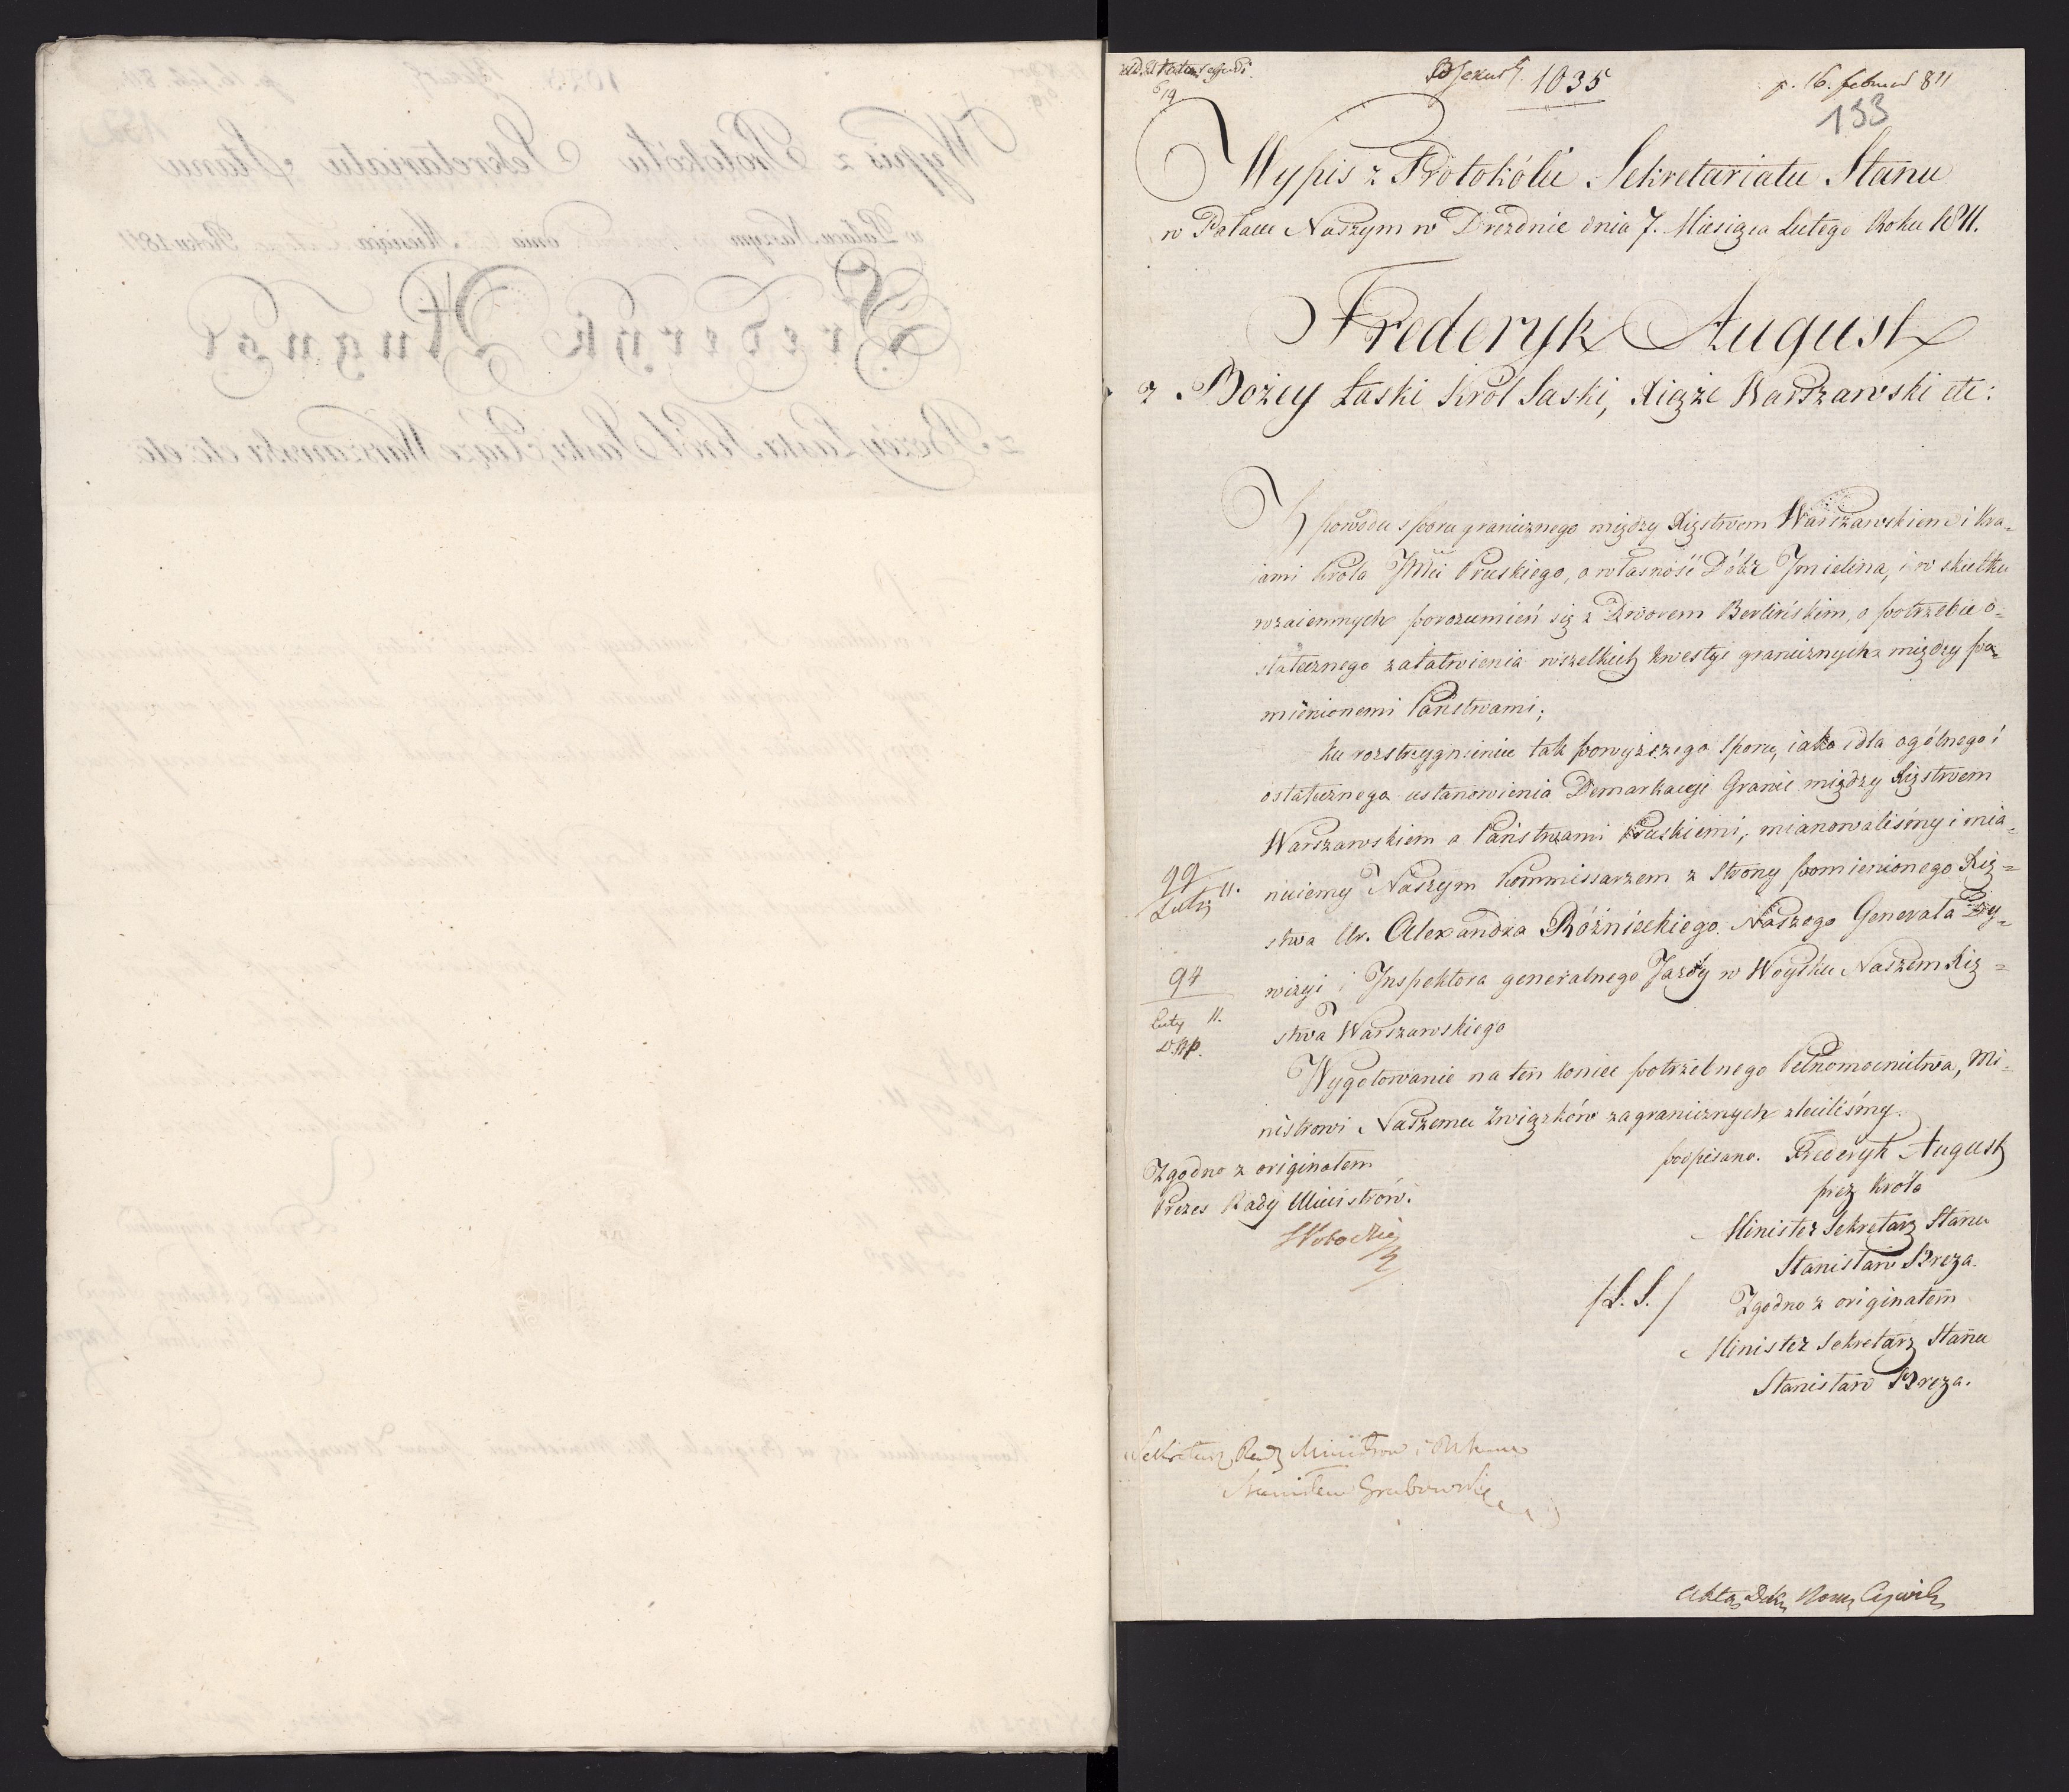 1035
p. 16. februar 811
133
Wypis z Protokółu Sekretariatu Stanu
w Pałacu Naszym w Dreźdnie dnia 7. Miesiąca Lutego Roku 1811.
Frederyk August
z Bożey Łaski Król Saski, Xiąże Warszawski etc:
Z powodu sporu granicznego między Xięstwem Warszawskiem i Kra=
iami Króla JMci Pruskiego, o własność Dóbr Jmielina, i w skutku
wzaiemnych porozumień się z Dworem Berlińskim, o potrzebie o=
statecznego załatwienia wszelkich kwestyi granicznych między po=
mienionemi Państwami;
ku rozstrzygnieniu tak powyższego sporu, iako i dla ogólnego i
ostatecznego ustanowienia Demarkacyi Granic między Xięstwem
Warszawskiem a Państwami Pruskiemi, mianowaliśmy i mia=
nuiemy Naszym Kommissarzem z Strony pomienionego Xię=
stwa Ur. Alexandra Różnieckiego Naszego Generała Dy=
wizyi i Inspektora generalnego Jazdy w Woysku Naszem Xię=
stwa Warszawskiego
99
Luty 11.
94
Luty 11.
Wygotowanie na ten koniec potrzebnego Pełnomocnictwa, Mi=
nistrowi Naszemu Związków zagranicznych zleciliśmy.
podpisano. Frederyk August
przez Króla
Minister Sekretarz Stanu
Stanisław Breza.
/L. S./ Zgodno z originałem
Minister Sekretarz Stanu
Stanisław Breza.
Zgodno z originałem
Prezes Rady Ministrów.
Sekretarz Rady Ministrów
Stanisław Grabowski